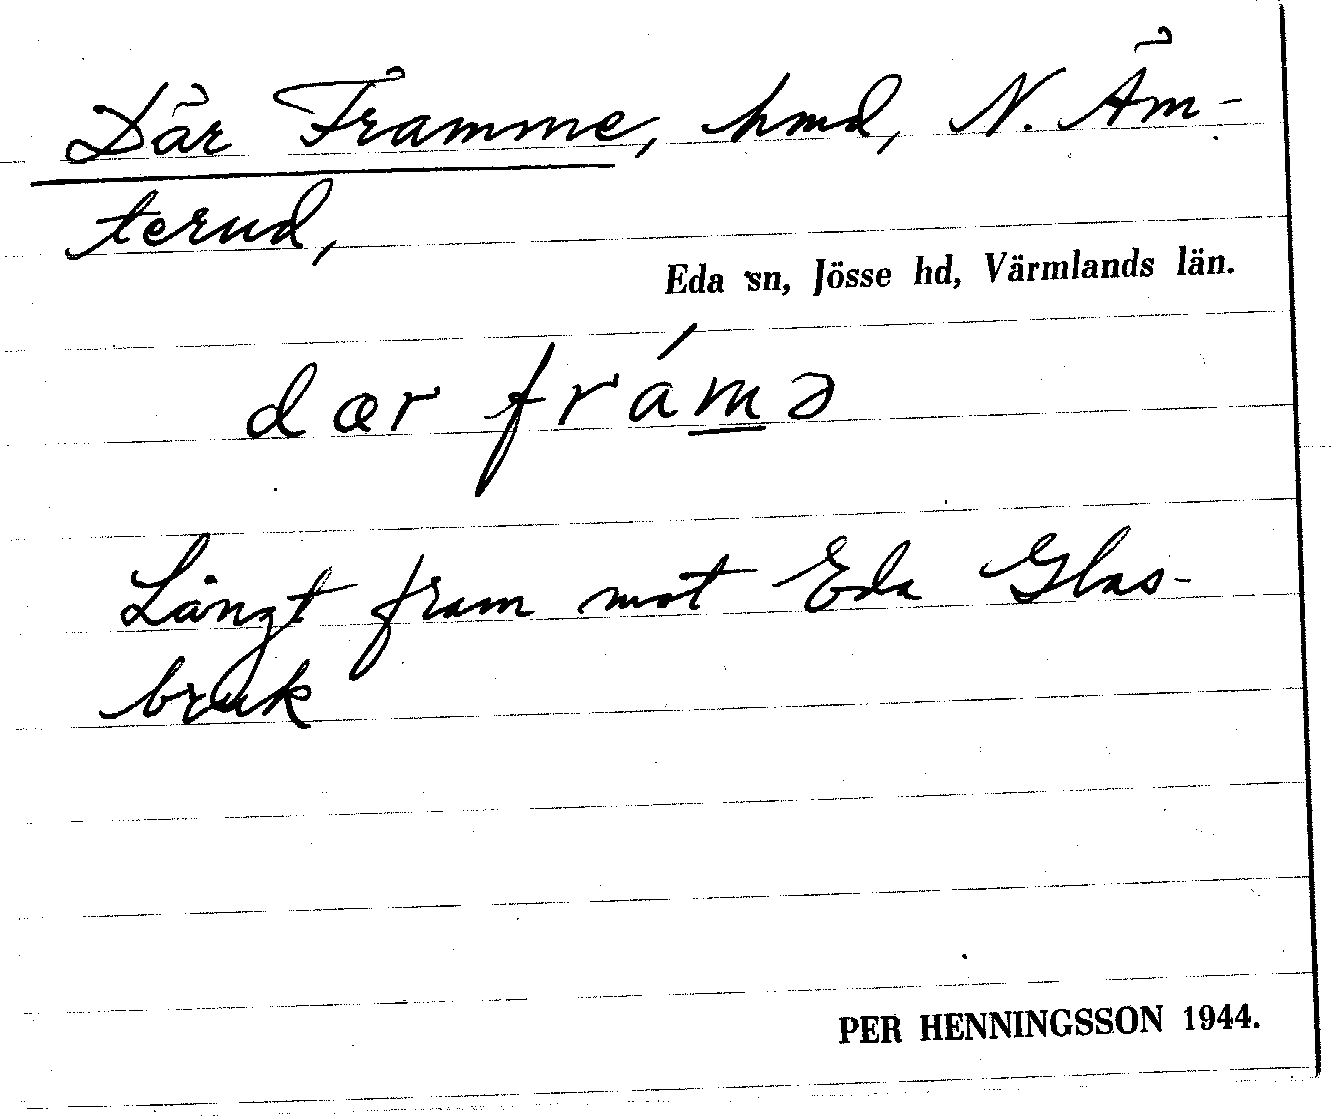 Där Framme, hmd, N. Äm-
terud,
Eda sn, Jösse hd, Värmlands län.
dær frámə
Långt fram mot Eda Glas-
bruk
PER HENNINGSSON 1944.